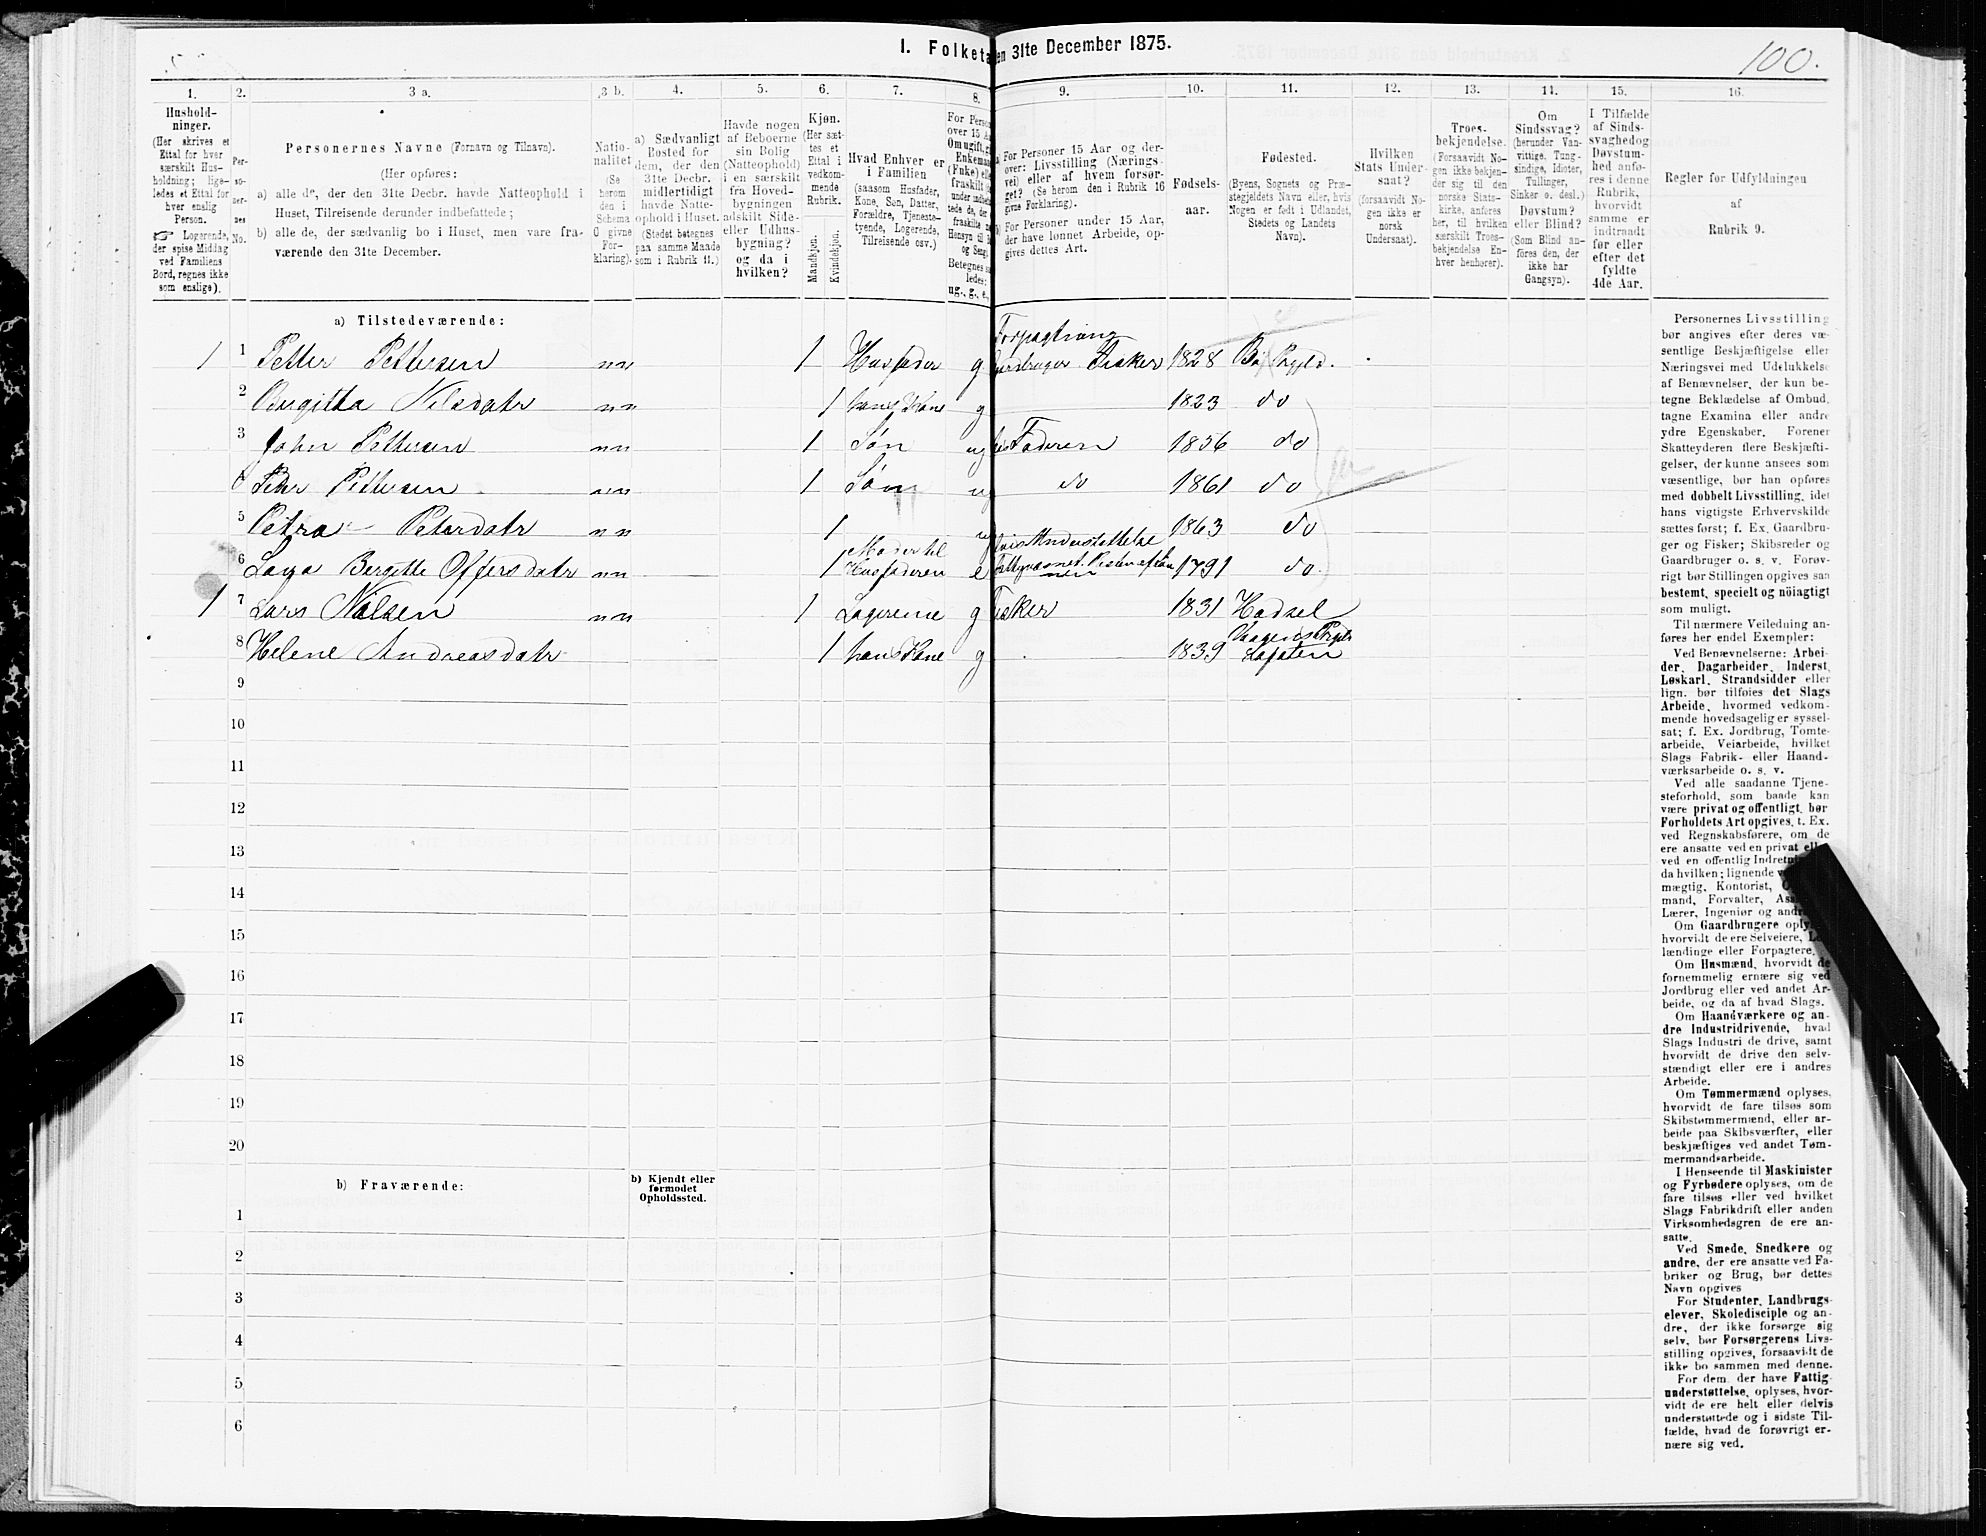 100.
I. Folketa
en 31te December 1875.
1.
Hushold-
ninger.
(Her skrives et
Ettal for hver
særskilt Hus-
holdning; lige-
ledes et Ettal for
hver enslig
Person.
☞ Logerende,
der spise Middag
ved Familiens
Bord, regnes ikke
som enslige).
2.
Per-
so-
ner-
nes
No.
3 a.
Personernes Navne (Fornavn og Tilnavn).
(Her opføres:
a) alle de, der den 31te Decbr. havde Natteophold i
Huset, Tilreisende derunder indbefattede;
b) alle de, der sædvanlig bo i Huset, men vare fra-
værende den 31te December.
3 b.
Natio-
nalitet
(Se
herom
den i
Schema
O givne
For-
klaring).
4.
a) Sædvanligt
Bosted for
dem, der den
31te Decbr.
midlertidigt
havde Natte-
ophold i Huset.
(Stedet betegnes
paa samme Maade
som i Rubrik 11.)
5.
Havde nogen
af Beboerne
sin Bolig
(Natteophold)
i en særskilt
fra Hoved-
bygningen
adskilt Side-
eller Udhus-
bygning?
og da i
hvilken?
6.
Kjøn.
(Her sæt-
tes et
Ettal i
vedkom-
mende
Rubrik.
Mandkjøn.
Kvindekjøn.
7.
Hvad Enhver er
i Familien
(saasom Husfader,
Kone, Søn, Datter,
Forældre, Tjeneste-
tyende, Logerende,
Tilreisende osv.)
8.
For Person
over 15 Aa
Om ugift, g
Enkema
(Enke) elle
fraskilt
under indbefa
tede de, de
fraskilte
Hensyn til
og Seng.
Betegnes s
ledes:
ug., g., e.,
9.
For Personer 15 Aar og der-
over: Livsstilling (Nærings-
vei) eller af hvem forsør-
get? (Se herom den i Rubrik 16
givne Forklaring.)
For Personer under 15 Aar,
der have lønnet Arbeide, op-
gives dettes Art.
10.
Fødsels-
aar.
11.
Fødested.
(Byens, Sognets og Præ-
stegjeldets Navn eller, hvis
Nogen er født i Udlandet,
Stedets og Landets
Navn).
12.
Hvilken
Stats Under-
saat?
(forsaavidt No-
gen ikke er
norsk
Undersaat).
13.
Troes-
bekjendelse.
(Forsaavidt No-
gen ikke bekjen-
der sig til den
norske Stats-
kirke, anføres
her, til hvilken
særskilt Troes-
bekjendelse En-
hver henhører).
14.
Om
Sindssvag?
(herunder Van-
vittige, Tung-
sindige, Idioter,
Tullinger,
Sinker o. desl.)
Døvstum?
eller Blind?
(Som Blind an-
føres den, der
ikke har
Gangsyn).
15.
I Tilfælde
af Sinds-
svaghed og
Døvstum-
hed anfø-
res i denne
Rubrik,
hvorvidt
samme er
indtraadt
før eller
efter det
fyldte
4de Aar.
16.
Regler for Udfyldningen
af
Rubrik 9.
a) Tilstedeværende:
Forpagtning
1 1 Petter Pettersen nn 1 Husfader g Fisker 1828 Bø Prgjld.
2 Birgitta Nilsdatr nn 1 hans Kone g 1823 do
3 John Pettersen nn 1 Søn ug Faderen 1856 do
Peder Pettersen nn 1 Søn ug do 1861 do
5 Petra Petersdatr nn 1 1863 do
Moder til
6 Bergitte Offersdatr nn 1 Husfaderen e 1791 do.
1 7 Lars Nielsen nn 1 Logerende g Fisker 1831 Hadsel
Vaagens Prgld
8 Helene Andreasdatr 1 hans Kone g 1839 Lofoten
9
10
11
12
13
14
15
16
17
18
19
20
b) Fraværende:
b) Kjendt eller
formodet
Opholdssted.
1
2
3
4
5
6
Personernes Livsstilling
bør angives efter deres væ-
sentlige Beskjæftigelse eller
Næringsvei med Udelukkelse
af Benævnelser, der kun be-
tegne Beklædelse af Ombud,
tagne Examina eller andre
ydre Egenskaber. Forener
Skatteyderen flere Beskjæfti-
gelser, der kunne ansees som
væsentlige, bør han opføres
med dobbelt Livsstilling, idet
hans vigtigste Erhvervskilde
sættes først; f. Ex. Gaardbru-
ger og Fisker; Skibsreder og
Gaardbruger o. s. v. Forøv-
rigt bør Stillingen opgives saa
bestemt, specielt og nöiagtigt
som muligt.
Til nærmere Veiledning an-
føres her endel Exempler:
Ved Benævnelserne: Arbei-
der, Dagarbeider, Inderst,
Løskarl, Strandsidder eller
lign. bør tilføies det Slags
Arbeide, hvormed vedkom-
mende hovedsagelig er syssel-
sat; f. Ex. Jordbrug, Tomte-
arbeide, Veiarbeide, hvilket
Slags Fabrik- eller Haand-
værksarbeide o. s. v.
Ved alle saadanne Tjene-
steforhold, som baade kan
være privat og offentligt, bør
Forholdets Art opgives, t. Ex.
ved Regnskabsførere, om de
ere ansatte ved en privat ell
ved en offentlig Indretni
da hvilken; lignende v
mægtig, Kontorist, O
mand, Forvalter, Ass
Lærer, Ingeniør og andr
Om Gaardbrugere oply
hvorvidt de ere Selveiere, L
lændinge eller Forpagtere.
Om Husmænd, hvorvidt de
fornemmelig ernære sig ved
Jordbrug eller ved andet Ar-
beide, og da af hvad Slags.
Om Haandværkere og an-
dre Industridrivende, hvad
Slags Industri de drive, samt
hvorvidt de drive den selv-
stændigt eller ere i andres
Arbeide.
Om Tømmermænd oplyses,
hvorvidt de fare tilsøs som
Skibstømmermænd, eller ar-
beide paa Skibsværfter, eller
beskjæftiges ved andet Tøm-
mermandsarbeide.
I Henseende til Maskinister
og Fyrbødere oplyses, om de
fare tilsøs eller ved hvilket
Slags Fabrikdrift eller anden
Virksomhedsgren de ere an-
satte.
Ved Smede, Snedkere og
andre, der ere ansatte ved Fa-
briker og Brug, bør dettes
Navn opgives
For Studenter, Landbrugs-
elever, Skoledisciple og an-
dre, der ikke forsørge sig
selv, bør Forsørgerens Livs-
stilling opgives, forsaavidt de
ikke bo sammen med denne.
For dem, der have Fattig-
understøttelse, oplyses, hvor-
vidt de ere helt eller delvis
understøttede og i sidste Til-
fælde, hvad de forøvrigt er-
nære sig ved.